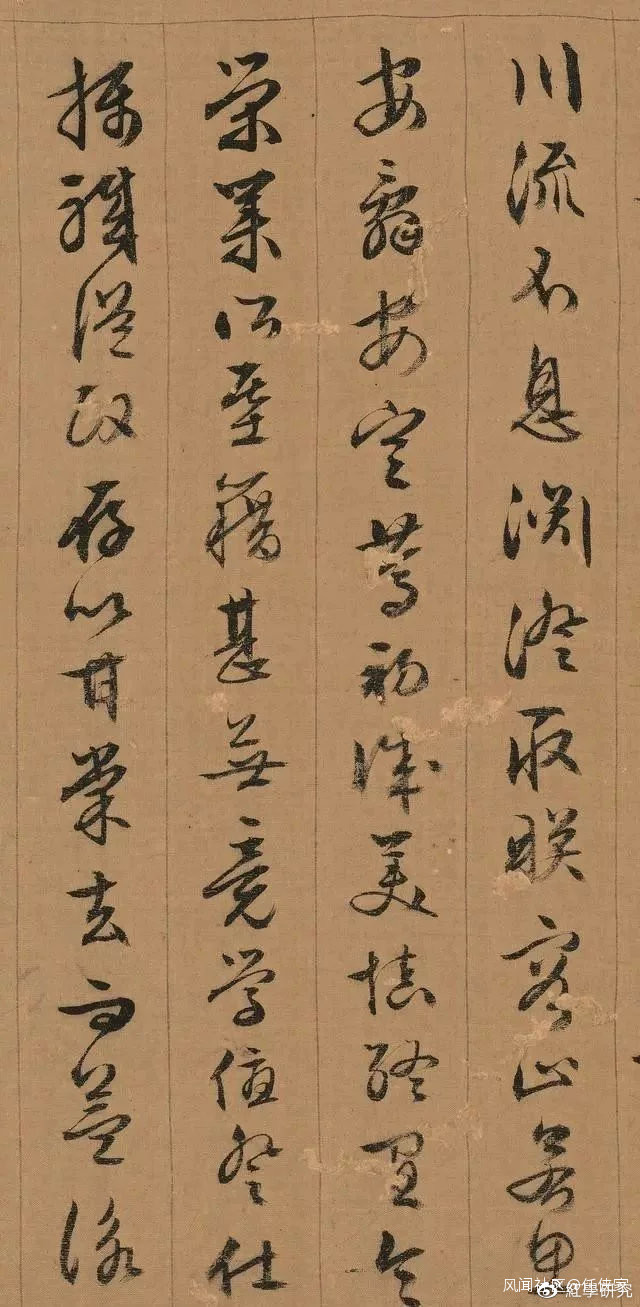 川流不息淵澄取映容止若思
辭安定篤初誠美慎終宜令
榮業所基籍甚無竟學優登仕
攝職從政存以甘棠去而益詠
风闻社区